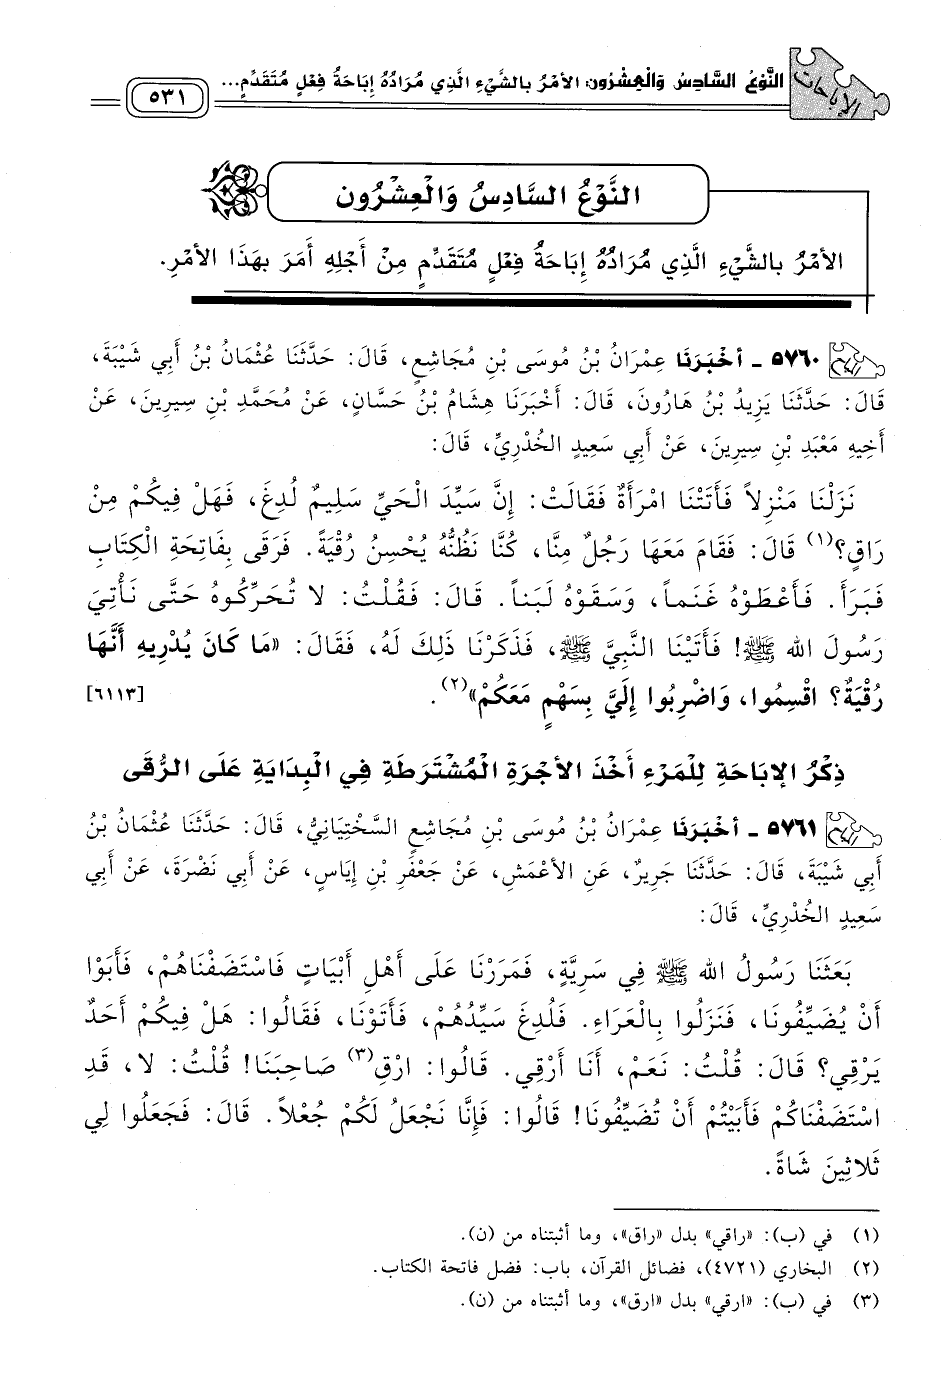 الإباحات
النَّوْعُ السَّادِسُ وَالْعِشْرُونَ: الأَمْرُ بالشَّيْءِ الَّذِي مُرَادُهُ إِبَاحَةُ فِعْلٍ مُتَقَدِّمٍ...
٥٣١
النَّوْعُ السَّادِسُ وَالْعِشْرُون
الأَمْرُ بالشَّيْءِ الَّذِي مُرَادُهُ إِبَاحَةُ فِعْلٍ مُتَقَدِّمٍ مِنْ أَجْلِهِ أَمَرَ بهَذَا الأَمْرِ.
٥٧٦٠ - أخْبَرَنَا عِمْرَانُ بْنُ مُوسَى بْنِ مُجَاشِعٍ، قَالَ: حَدَّثَنَا عُثْمَانُ بْنُ أَبي شَيْبَةَ،
قَالَ: حَدَّثَنَا يَزِيدُ بْنُ هَارُونَ، قَالَ: أَخْبَرَنَا هِشَامُ بْنُ حَسَّانٍ، عَنْ مُحَمَّدِ بْنِ سِيرِينَ، عَنْ
أَخِيهِ مَعْبَدِ بْنِ سِيرِينَ، عَنْ أَبي سَعِيدٍ الخُدْرِيِّ، قَالَ:
نَزَلْنَا مَنْزِلاً فَأَتَتْنَا امْرَأَةٌ فَقَالَتْ: إِنَّ سَيِّدَ الْحَيِّ سَلِيمٌ لُدِغَ، فَهَلْ فِيكُمْ مِنْ
رَاقٍ؟(١) قَالَ: فَقَامَ مَعَهَا رَجُلٌ مِنَّا، كُنَّا نَظُنُّهُ يُحْسِنُ رُقْيَةً. فَرَقَى بِفَاتِحَةِ الْكِتَابِ
فَبَرَأَ. فَأَعْطَوْهُ غَنَماً، وَسَقَوْهُ لَبَناً. قَالَ: فَقُلْتُ: لا تُحَرِّكُوهُ حَتَّى نَأْتِيَ
رَسُولَ الله ﷺ! فَأَتَيْنَا النَّبِيَّ ﷺ، فَذَكَرْنَا ذَلِكَ لَهُ، فَقَالَ: «مَا كَانَ يُدْرِيهِ أَنَّهَا
رُقْيَةٌ؟ اقْسِمُوا، وَاضْرِبُوا إِلَيَّ بِسَهْمٍ مَعَكُمْ»(٢). [٦١١٣]
ذِكْرُ الإبَاحَةِ لِلْمَرْءِ أَخْذَ الأُجْرَةِ الْمُشْتَرَطَةِ فِي الْبِدَايَةِ عَلَى الرُّقَى
٥٧٦١ - أخْبَرَنَا عِمْرَانُ بْنُ مُوسَى بْنِ مُجَاشِعٍ السَّخْتِيَانِيُّ، قَالَ: حَدَّثَنَا عُثْمَانُ بْنُ
أَبي شَيْبَةَ، قَالَ: حَدَّثَنَا جَرِيرٌ، عَنِ الأَعْمَشِ، عَنْ جَعْفَرِ بْنِ إِيَاسٍ، عَنْ أَبي نَضْرَةَ، عَنْ أَبي
سَعِيدٍ الخُدْرِيِّ، قَالَ:
بَعَثَنَا رَسُولُ الله ﷺ فِي سَرِيَّةٍ، فَمَرَرْنَا عَلَى أَهْلِ أَبْيَاتٍ فَاسْتَضَفْنَاهُمْ، فَأَبَوْا
أَنْ يُضَيِّفُونَا، فَنَزَلُوا بِالْعَرَاءِ. فَلُدِغَ سَيِّدُهُمْ، فَأَتَوْنَا، فَقَالُوا: هَلْ فِيكُمْ أَحَدٌ
يَرْقِي؟ قَالَ: قُلْتُ: نَعَمْ، أَنَا أَرْقِي. قَالُوا: ارْقِ(٣) صَاحِبَنَا! قُلْتُ: لا، قَدِ
اسْتَضَفْنَاكُمْ فَأَبَيْتُمْ أَنْ تُضَيِّفُونَا! قَالُوا: فَإِنَّا نَجْعَلُ لَكُمْ جُعْلاً. قَالَ: فَجَعَلُوا لِي
ثَلاثِينَ شَاةً.
(١) في (ب): «راقي» بدل «راق»، وما أثبتناه من (ن).
(٢) البخاري (٤٧٢١)، فضائل القرآن، باب: فضل فاتحة الكتاب.
(٣) في (ب): «ارقي» بدل «ارق»، وما أثبتناه من (ن).